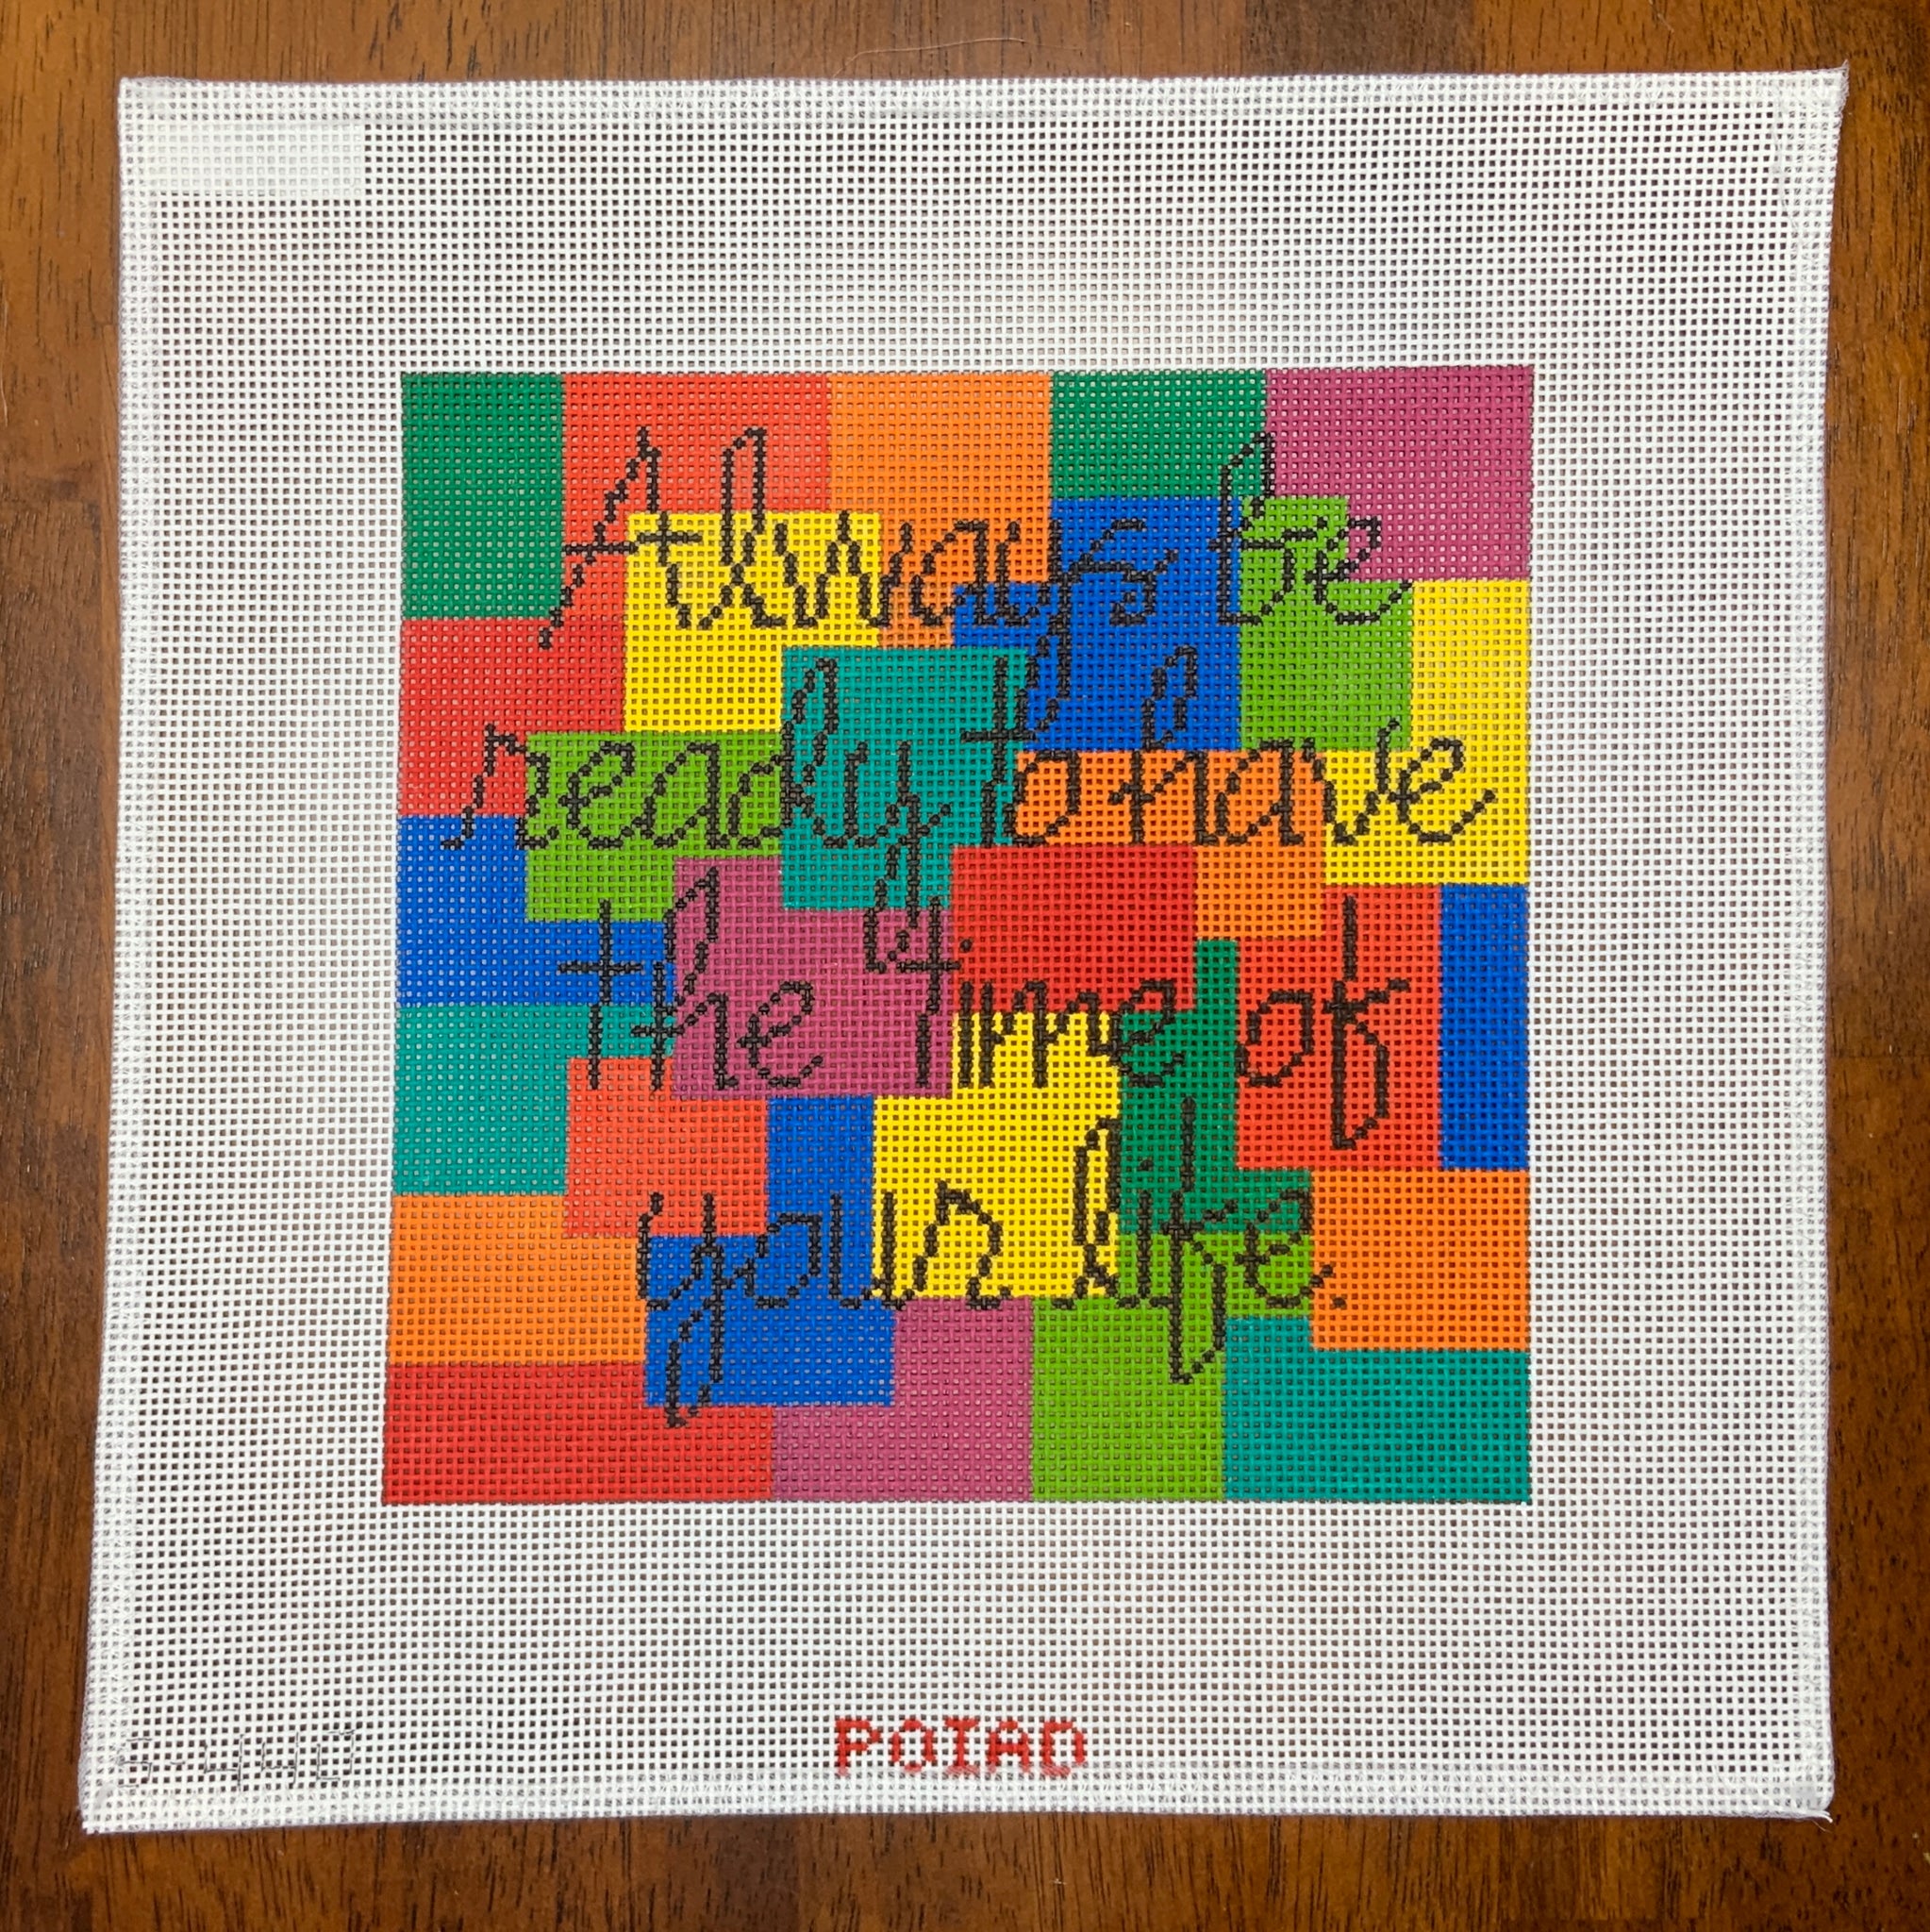 Always be
ready to have
the time of
your life.
POIAD
S-440